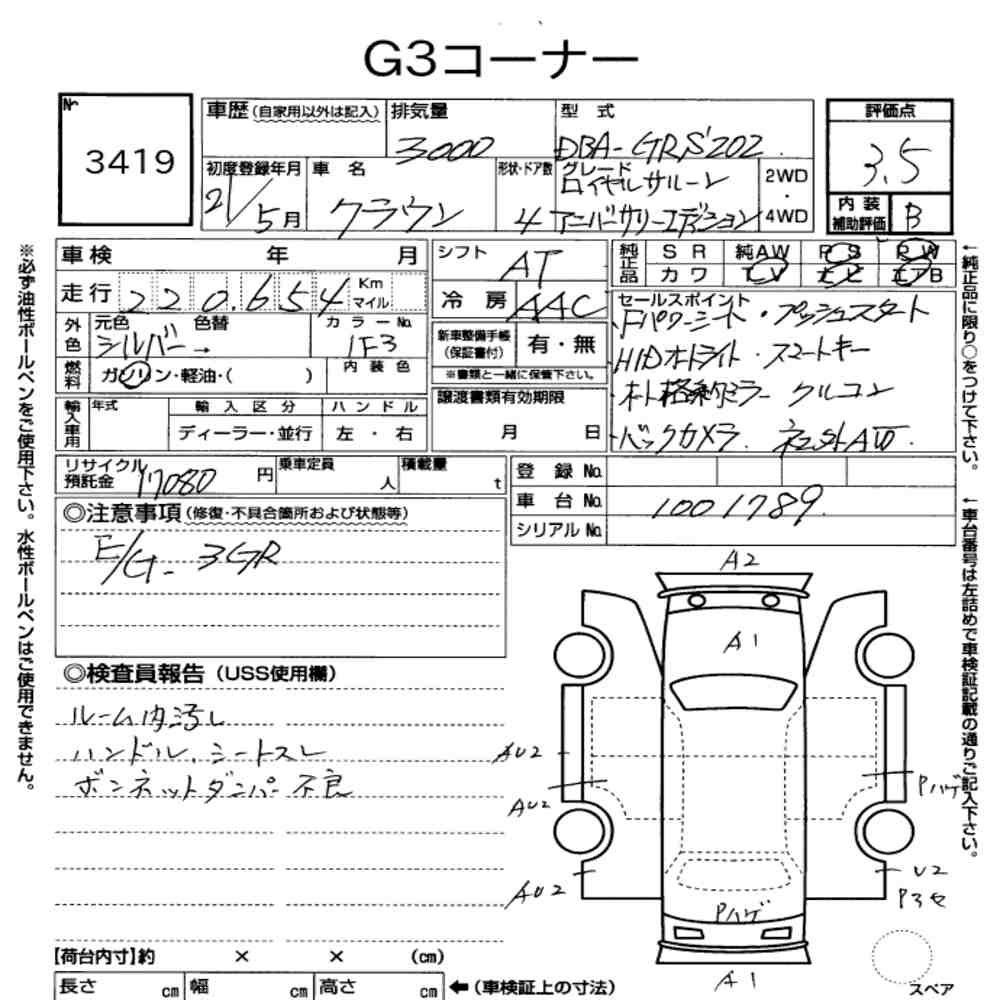 G3コーナー
№ 3419
車歴(自家用以外は記入) 排気量 3000 型式 DBA-GRS202
初度登録年月 21/5月 車名 クラウン 形状・ドア数 4 グレード ロイヤルサルーン アニバーサリーエディション 2WD・4WD
評価点 3.5
内装補助評価 B
車検 年 月
走行 220,654 Km マイル
シフト AT
冷房 AAC
純正品 SR 純AW PS PW
カワ TV ナビ エアB
外色 元色 シルバー 色替 → カラーNo. 1F3
燃料 ガソリン・軽油・( ) 内装色
新車整備手帳(保証書付) 有・無
※書類と一緒に保管下さい。
セールスポイント
・Fパワーシート・プッシュスタート
HIDオートライト・スマートキー
オート格納ミラー クルコン
・バックカメラ. 社外AW.
輸入車用 年式 輸入区分 ディーラー・並行 ハンドル 左・右
譲渡書類有効期限 月 日
リサイクル預託金 17080円 乗車定員 人 積載量 t
登録No.
車台No. 1001789
シリアルNo.
◎注意事項(修復・不具合箇所および状態等)
E/G- 3GR
◎検査員報告(USS使用欄)
ルーム内汚し
ハンドル、シートスレ
ボンネットダンパー不良
A2
A1
AU2
AU2
AU2
Pハゲ
Pハゲ
U2
P3セ
A1
スペア
【荷台内寸】約 × × (cm)
長さ cm 幅 cm 高さ cm ←(車検証上の寸法)
※必ず油性ボールペンをご使用下さい。水性ボールペンはご使用できません。
←純正品に限り○をつけて下さい。
←車台番号は左詰めで車検証記載の通りご記入下さい。